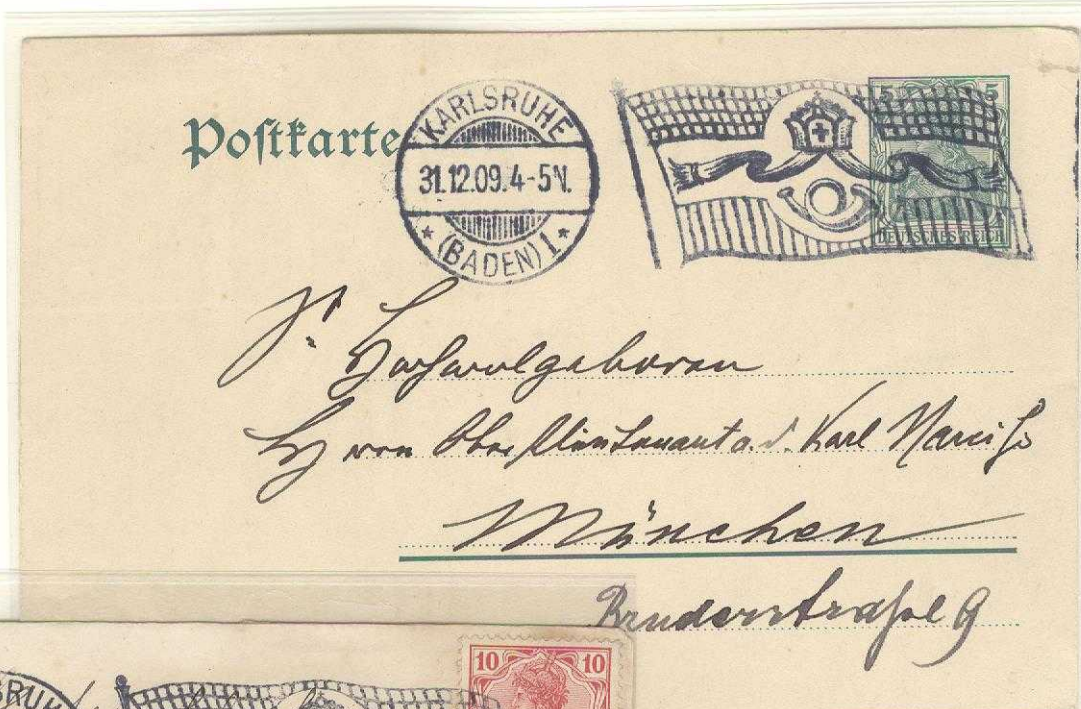 Postkarte
KARLSRUHE
31.12.09.4-5N.
* (BADEN) 1. *
5 5
DEUTSCHES REICH
S. Hochwolgeboren
Herrn Oberstlieutenant a. d. Karl
München
Bruderstraße 9
10 10